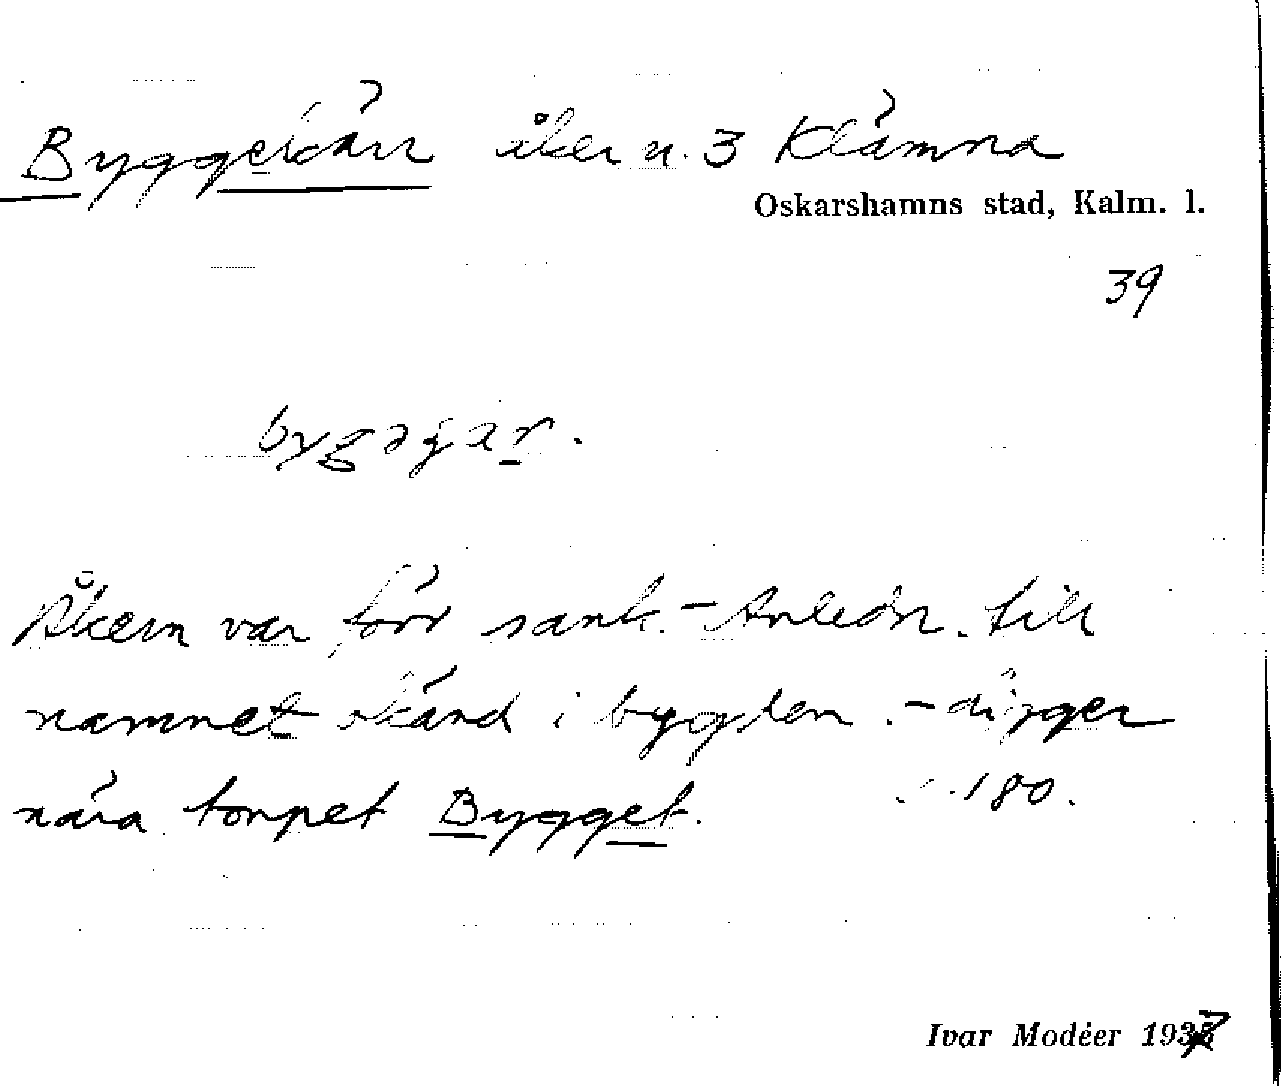 Byggekärr åker u. 3 Klämna
Oskarshamns stad, Kalm. l.
39
Åkern var förr sank. - Anledn. till
namnet okänd i bygden. - Ligger
nära torpet Bygget. 180.
Ivar Modéer 1937